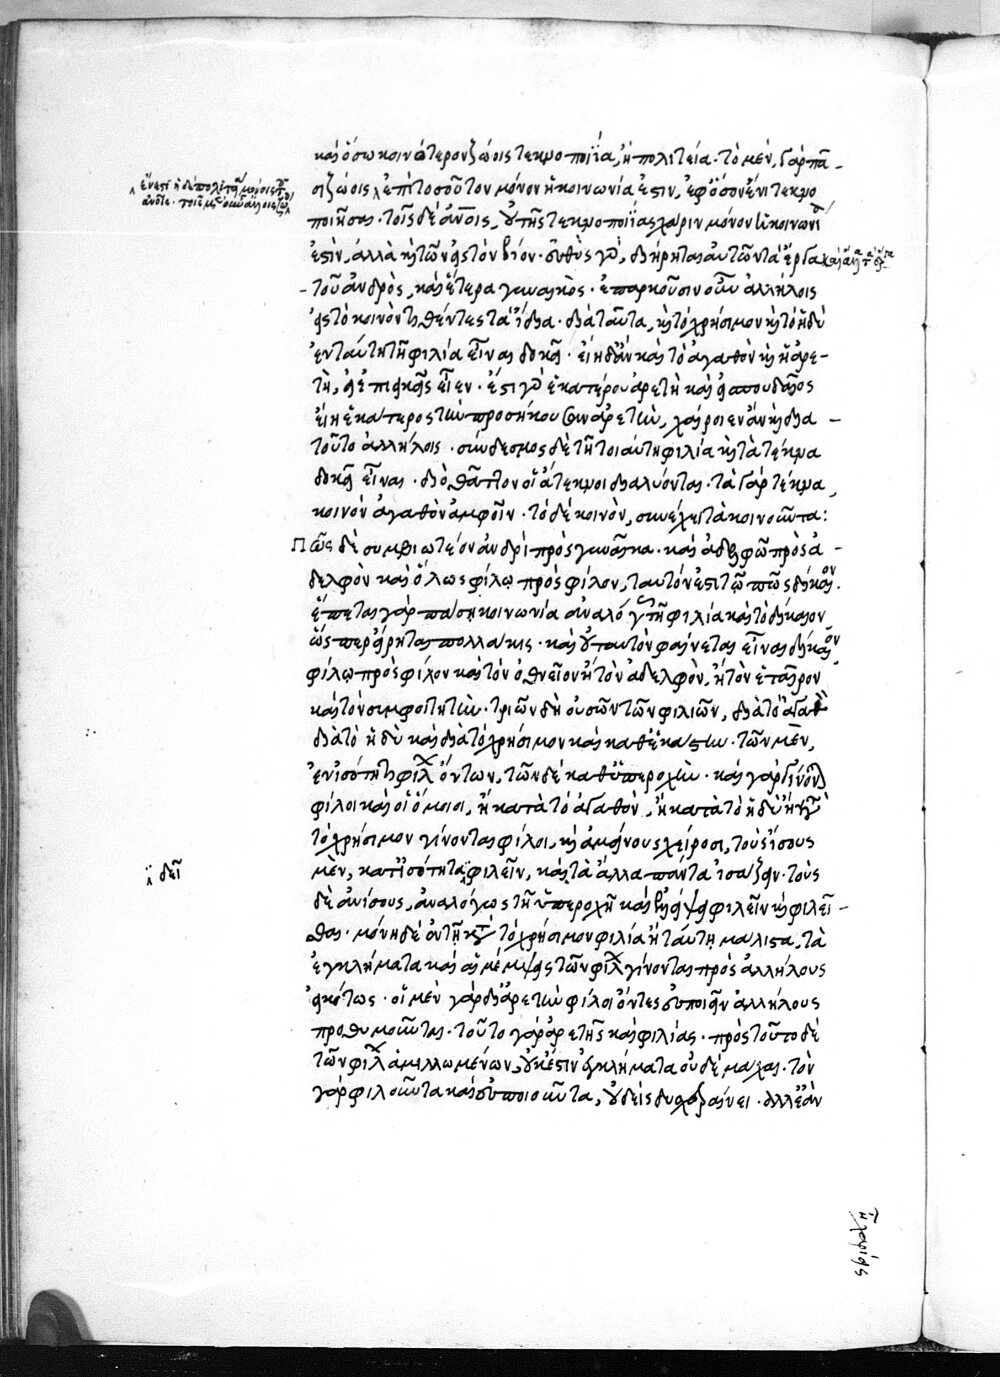 καὶ ὅσω κοινότερον ζώοις τεκνοποιΐα, ἢ πολιτεία· τὸ μὲν, γὰρ πᾶ-
σι ζώοις ἐπὶ τοσοῦτον μόνον ἡ κοινωνία ἐστὶν, ἐφ' ὅσον ἔνι τεκνο
ποιῆσαι· τοῖς δὲ ἀνοις, οὐ τῆς τεκνοποιΐας χάριν μόνον ἡ κοινωνί
ἐστὶν, ἀλλὰ καὶ τῶν εἰς τὸν βίον· εὐθὺς γὰρ, διήρηται αὐτῶν τὰ ἔργα
τοῦ ἀνδρὸς, καὶ ἕτερα γυναικός· ἐπαρκοῦσιν οὖν ἀλλήλοις
εἰς τὸ κοινὸν τιθέντες τὰ ἴδια· διὰ ταῦτα, καὶ τὸ χρήσιμον καὶ τὸ ἡδὺ
ἐν ταύτῃ τῇ φιλία εἶναι δοκεῖ· εἴη δ' ἂν καὶ τὸ ἀγαθὸν καὶ ἡ ἀρε-
τὴ, εἰ ἐπιεικεῖς εἶεν· ἔστι γὰρ ἑκατέρου ἀρετὴ καὶ εἰ σπουδαῖος
εἴη ἑκάτερος τὴν προσήκουσαν ἀρετὴν, χαίροιεν ἂν καὶ διὰ
τοῦτο ἀλλήλοις· σύνδεσμος δὲ τῇ τοιαύτῃ φιλία καὶ τὰ τέκνα
δοκεῖ εἶναι· διὸ θᾶττον οἱ ἄτεκνοι διαλύονται· τὰ γὰρ τέκνα,
κοινὸν ἀγαθὸν ἀμφοῖν· τὸ δὲ κοινὸν, συνέχει τὰ κοινοῦντα:
Πῶς δὲ συμβιωτέον ἀνδρὶ πρὸς γυναῖκα· καὶ ἀδελφῶ πρὸς ἀ-
δελφὸν καὶ ὅλως φίλῳ πρὸς φίλον, ταυτόν ἐστι τῶ πῶς δίκαιον·
ἕπεται γὰρ πάσῃ κοινωνία ἀναλόγως τῇ φιλία καὶ τὸ δίκαιον
ὥσπερ εἴρηται πολλάκις· καὶ οὐ ταυτὸν φαίνεται εἶναι δίκαιον
φίλῳ πρὸς φίλον καὶ τὸν ὀθνεῖον ἢ τὸν ἀδελφὸν, ἢ τὸν ἑταῖρον
καὶ τὸν συμφοιτητὴν· τριῶν δὴ οὐσῶν τῶν φιλιῶν, διὰ τὸ ἀγαθὸν
διὰ τὸ ἡδὺ καὶ διὰ τὸ χρήσιμον καὶ καθ' ἑκάστην· τῶν μὲν,
ἐν ἰσότητι φίλων ὄντων, τῶν δὲ καθ' ὑπεροχὴν· καὶ γὰρ γίνονται
φίλοι καὶ οἱ ὅμοιοι, ἢ κατὰ τὸ ἀγαθὸν, ἢ κατὰ τὸ ἡδὺ ἢ κατὰ
τὸ χρήσιμον γίνονται φίλοι, καὶ ἀμείνους χείροσι, τοὺς ἴσους
μὲν, κατ' ἰσότητα φιλεῖν, καὶ τὰ ἄλλα πάντα ἰσάζειν· τοὺς
δὲ ἀνίσους, ἀναλόγως τῇ ὑπεροχῇ καὶ φιλεῖν καὶ φιλεῖ-
θαι· μόνη δὲ ἐν τῇ κατὰ τὸ χρήσιμον φιλία ἢ ταύτῃ μάλιστα, τὰ
ἐγκλήματα καὶ αἱ μέμψεις τῶν φίλων γίνονται πρὸς ἀλλήλους
εἰκότως· οἱ μὲν γὰρ δι' ἀρετὴν φίλοι ὄντες εὐποιεῖν ἀλλήλους
προθυμοῦνται· τοῦτο γὰρ ἀρετῆς καὶ φιλίας· πρὸς τοῦτο δὲ
τῶν φίλων ἁμιλλωμένων, οὐκ ἔστιν ἐγκλήματα οὐδὲ μάχαι· τὸν
γὰρ φιλοῦντα καὶ εὐποιοῦντα, οὐδεὶς δυσχεραίνει· ἀλλ' ἐὰν
δεῖ